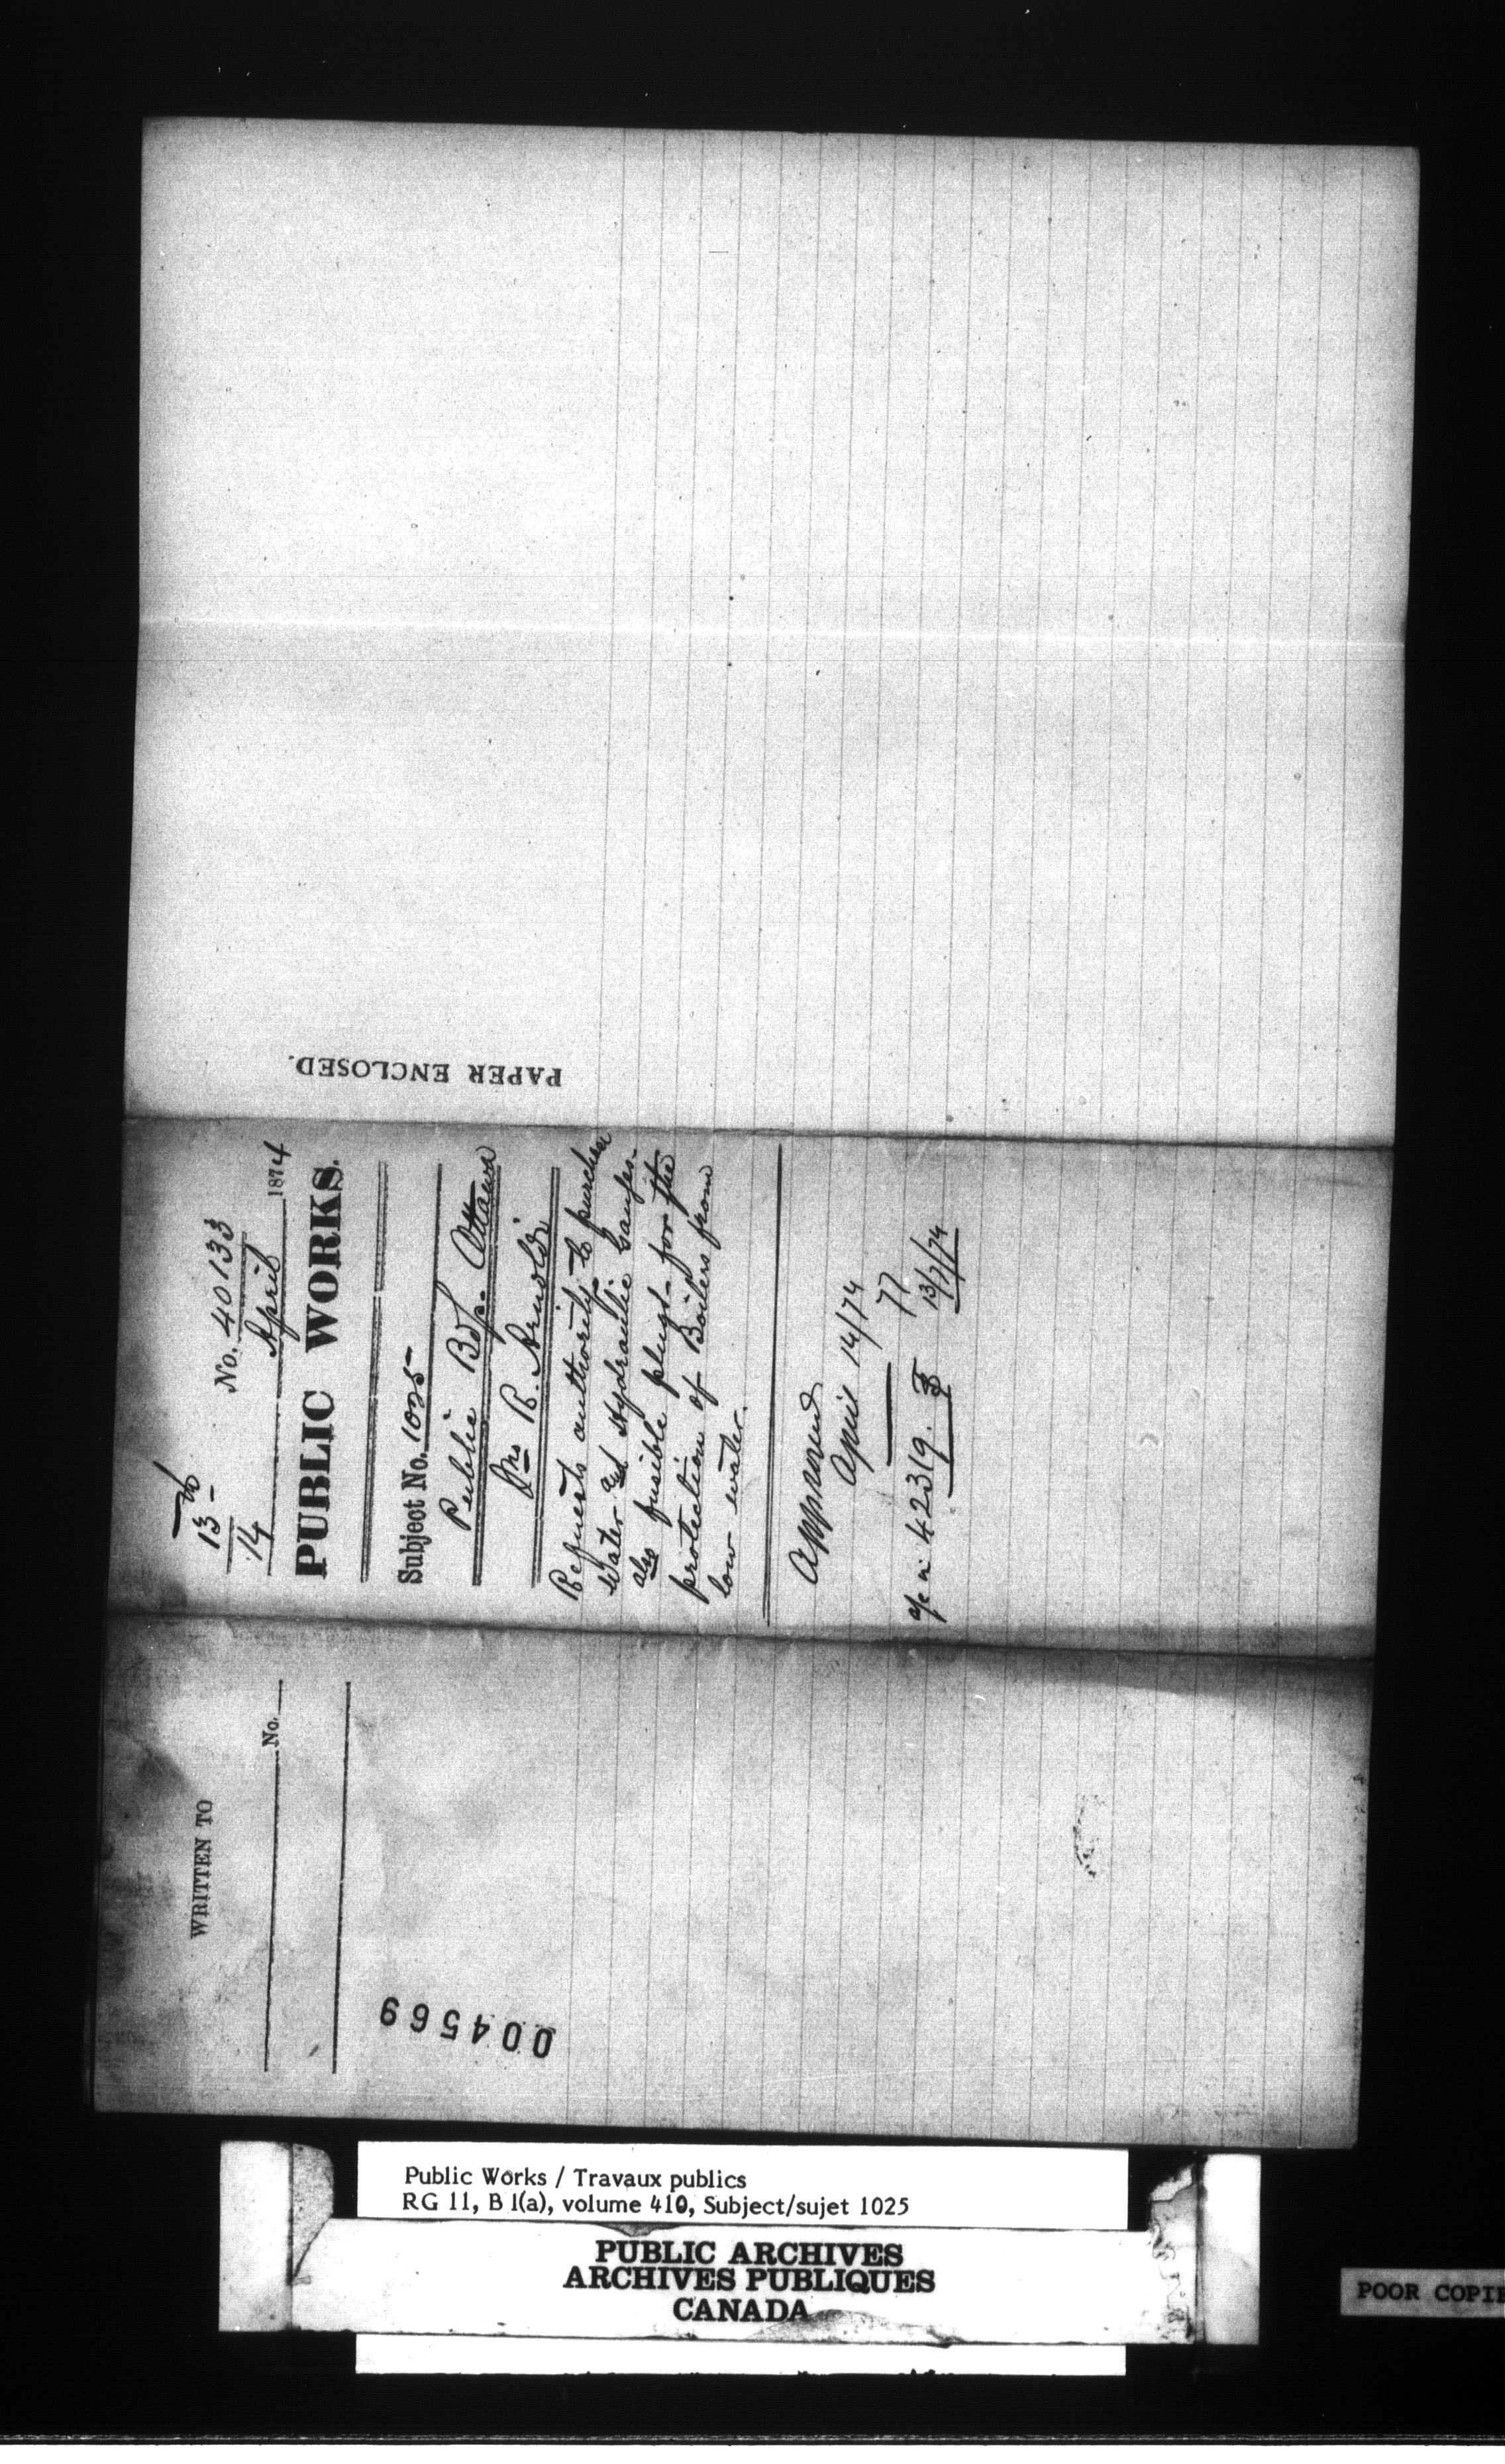 13
14
No. 40133
April 1874
PUBLIC WORKS.
Subject No. 1025
Public Bdgs. Ottawa
R. Arnoldi
Requests authority to purchase
Water and Hydraulic Gauges-
also fusible plugs- for the
protection of Boilers from
low water.
Approved
April 14/74
77
42319. 13/7/74
PAPER ENCLOSED.
WRITTEN TO
No.
004569
Public Works / Travaux publics
RG 11, B 1(a), volume 410, Subject/sujet 1025
PUBLIC ARCHIVES
ARCHIVES PUBLIQUES
CANADA
POOR COPIE